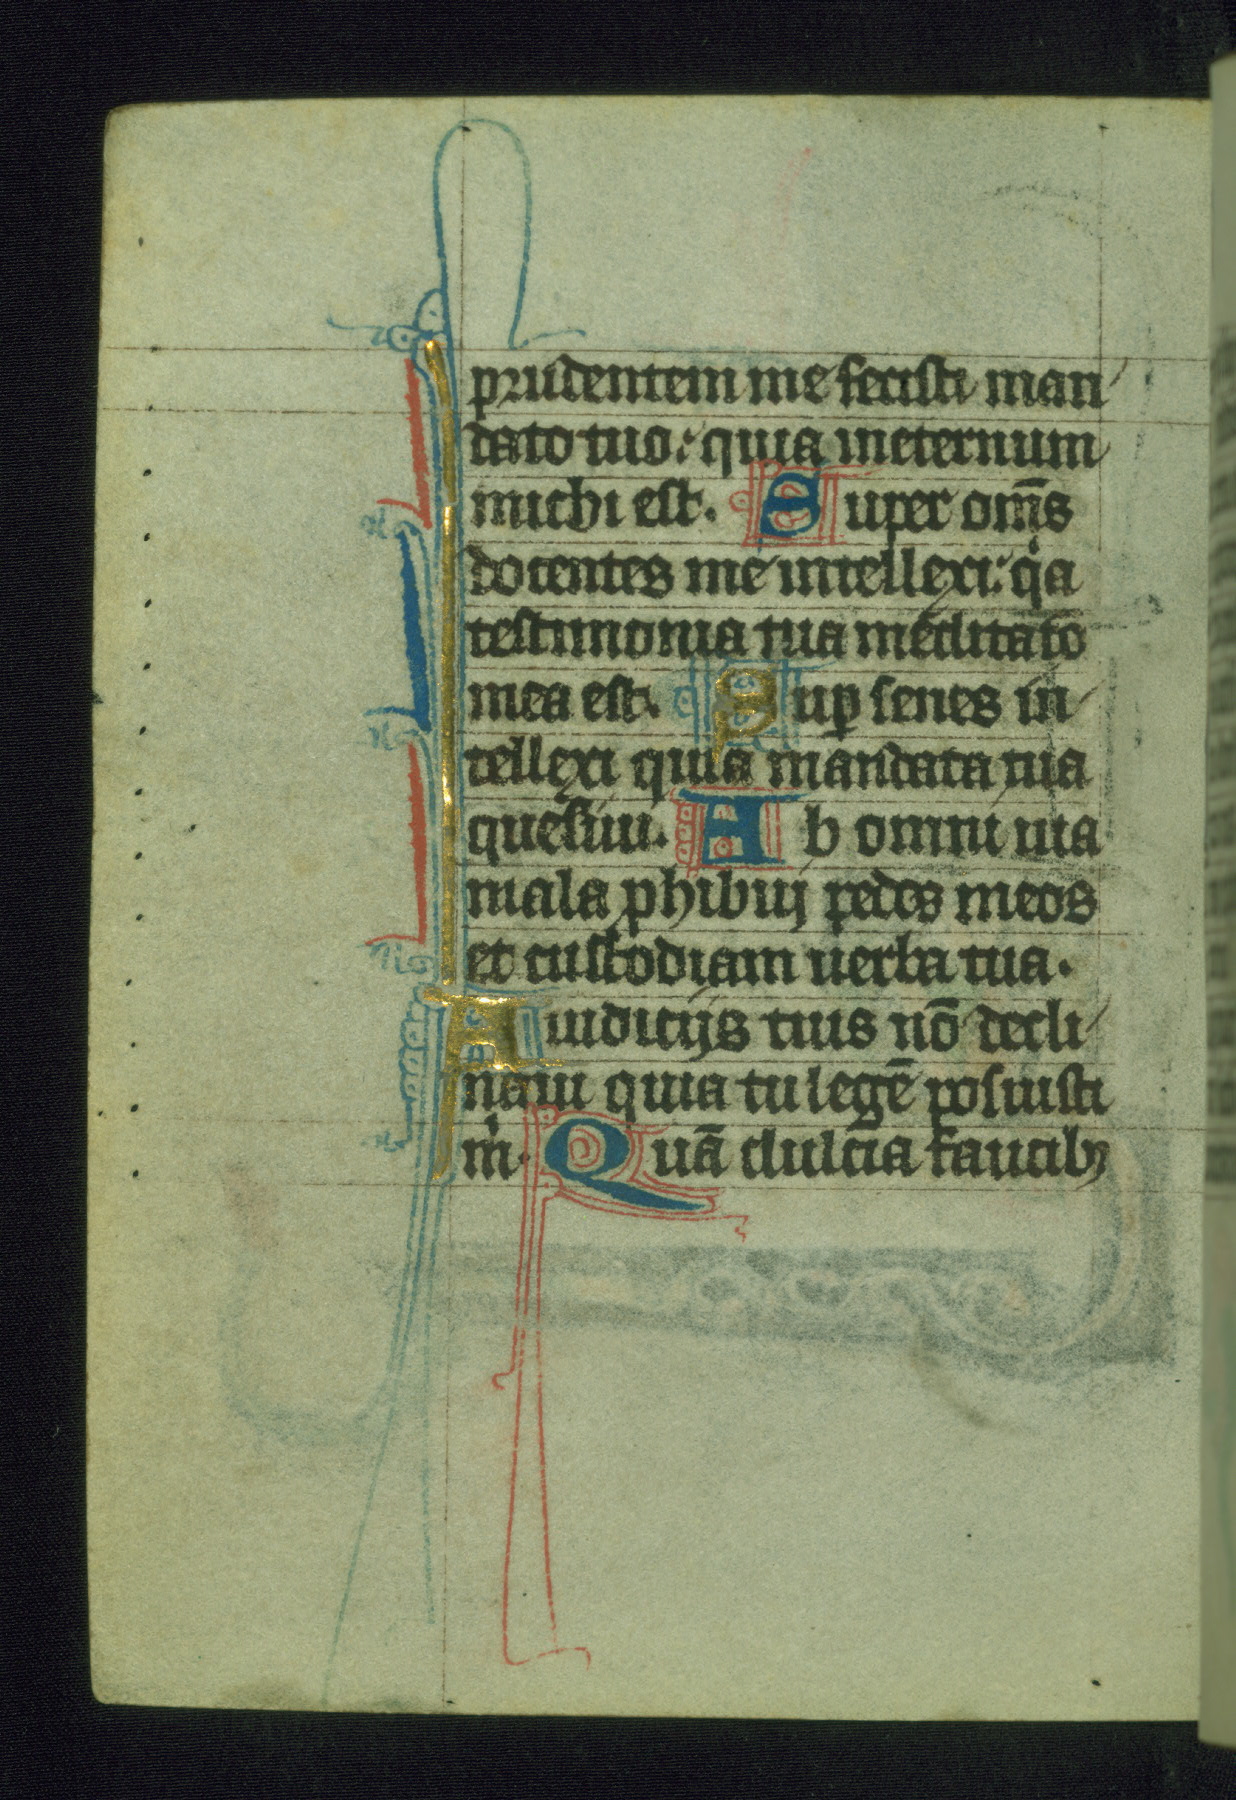 prudentem me fecisti man
dato tuo: quia ineternum
michi est. Super om̅s
docentes me intellexi: qͥa
testimonia tua meditatio
mea est. Suꝑ senes in
tellexi quia mandata tua
quesiui. Ab omni uia
mala phibuj pedes meos
et custodiam uerba tua.
A iudicijs tuis nō decli
naui quia tu legē posuisti
mͥ. Quā dulcia faucibꝫ